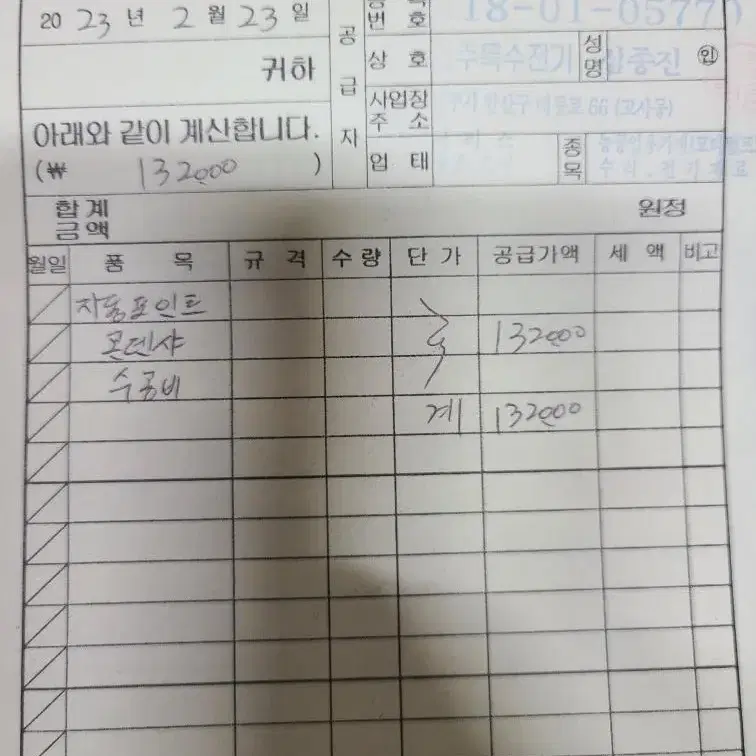 번 호 18-01-05770
2023년 2월 23일
귀하
공급자
상 호 수특수전기 성명 김종진 ㊞
사업장 주 소 66 (고사동)
아래와 같이 계산합니다.
(₩ 132000 )
업 태 종목
수리. 전기재료
합계 금액 원정
월일 품 목 규 격 수량 단 가 공급가액 세 액 비고
자동포인트
콘덴샤 132000
수공비
계 132000